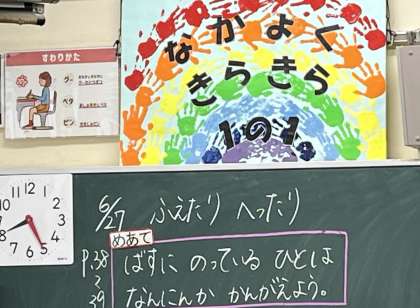 すわりかた
グー
ペタ
ピン
なかよく
きらきら
1の1
12
11
1
10
2
9
3
8
4
7
5
6
6/27 ふえたり へったり
めあて
P.38 ばすに のっている ひとは
39 なんにんか かんがえよう。